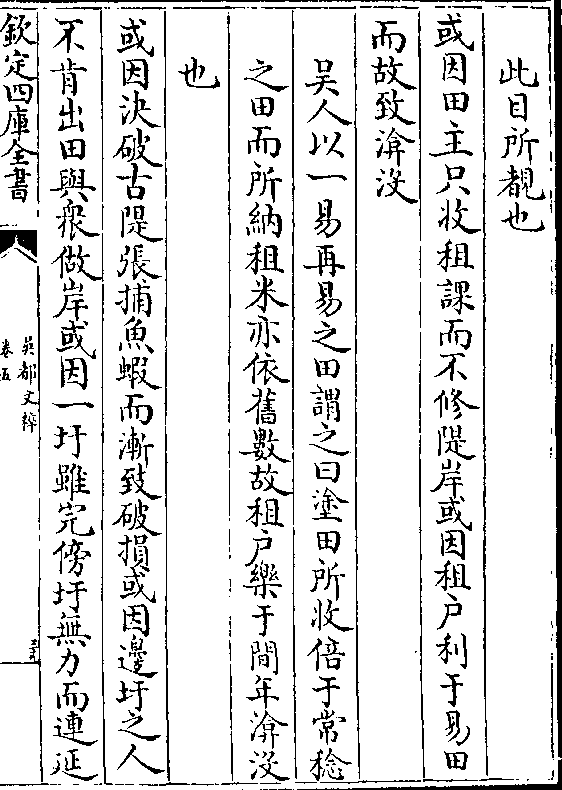 此目所覩也
或因田主只收租課而不修隄岸或因租户利于易田
而故致渰没
吴人以一易再易之田謂之曰塗田所收倍于常稔
之田而所納租米亦依舊數故租户樂于間年渰没
也
或因決破古隄張捕魚蝦而漸致破損或因邊圩之人
不肯出田與衆做岸或因一圩雖完傍圩無力而連延
欽定四庫全書
吴都文粹
卷五